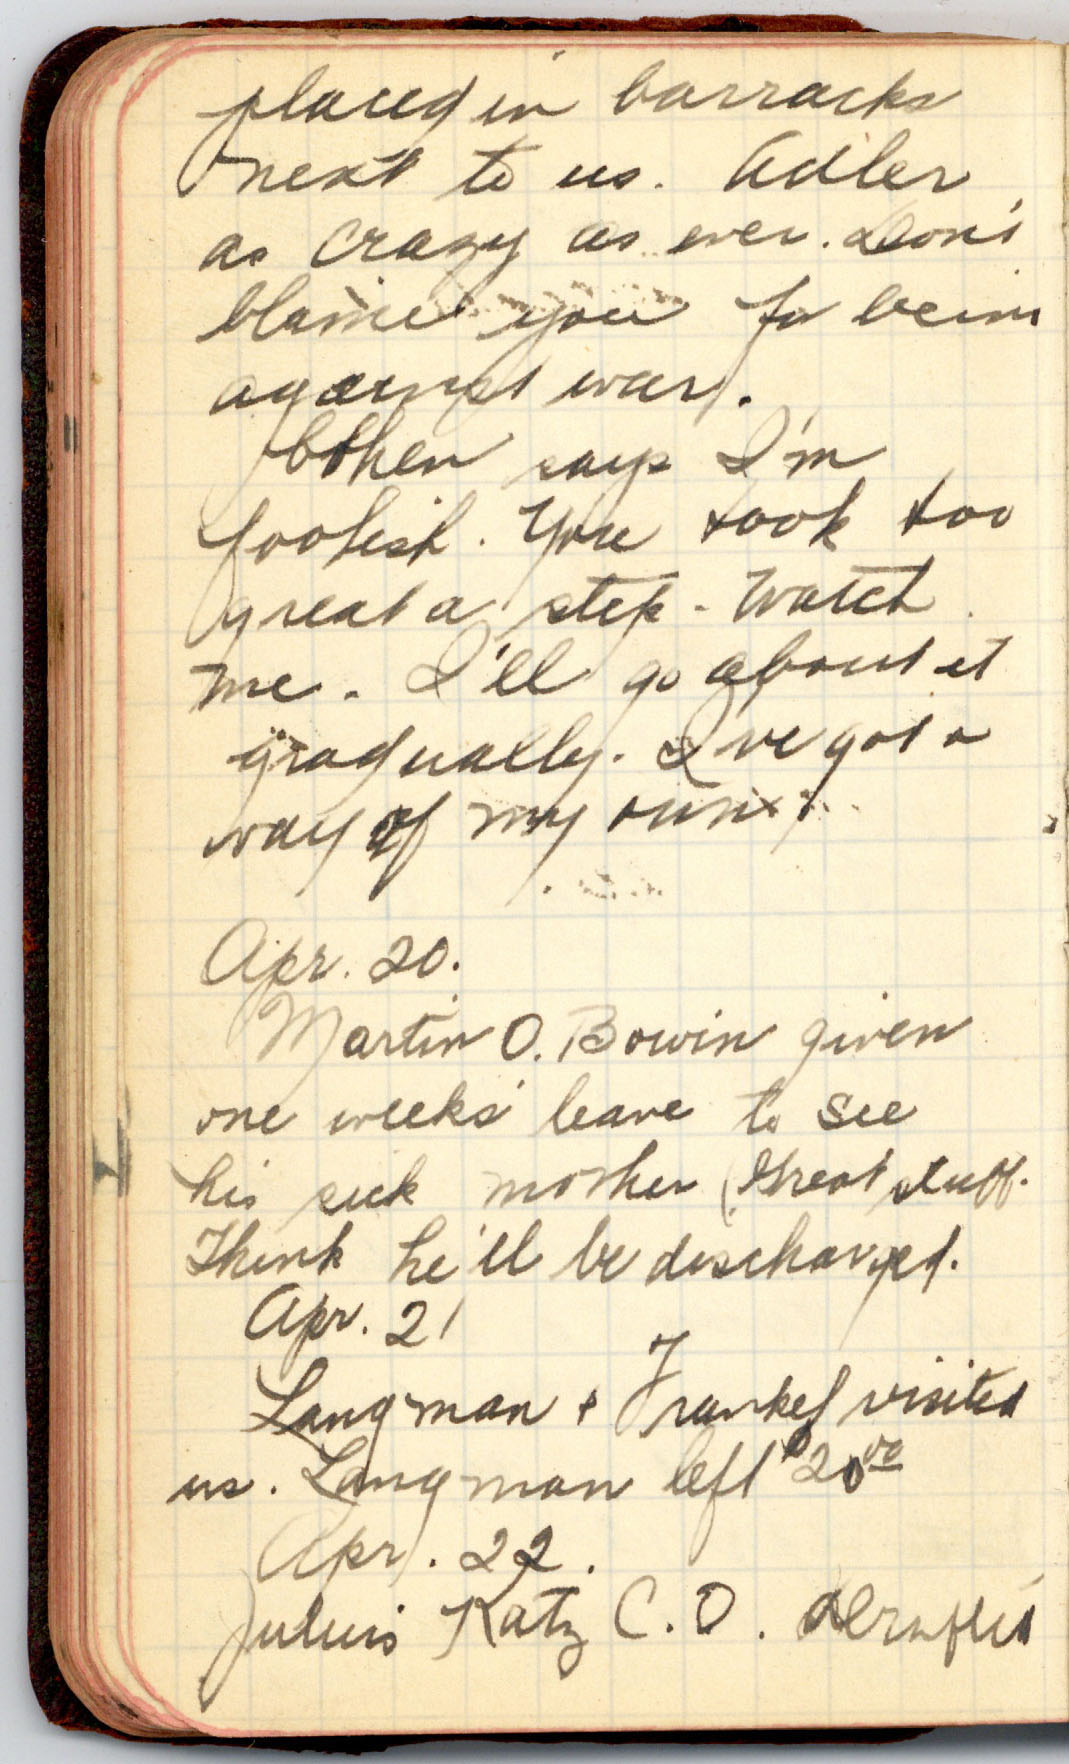 placed in barracks
next to us. Adler
as crazy as ever. Don't
blame you for being
against war.
Cohen says I'm
foolish. You took too
great a step - Watch
me. I'll go about it
gradually. I've got a
way of my own.
Apr. 20.
Martin O. Bowin given
one weeks' leave to see
his sick mother (Great stuff.
Think he'll be discharged.
Apr. 21
Langman + Frankel visited
us. Langman left $20 00
Apr. 22.
Julius Katz C.O. drafted